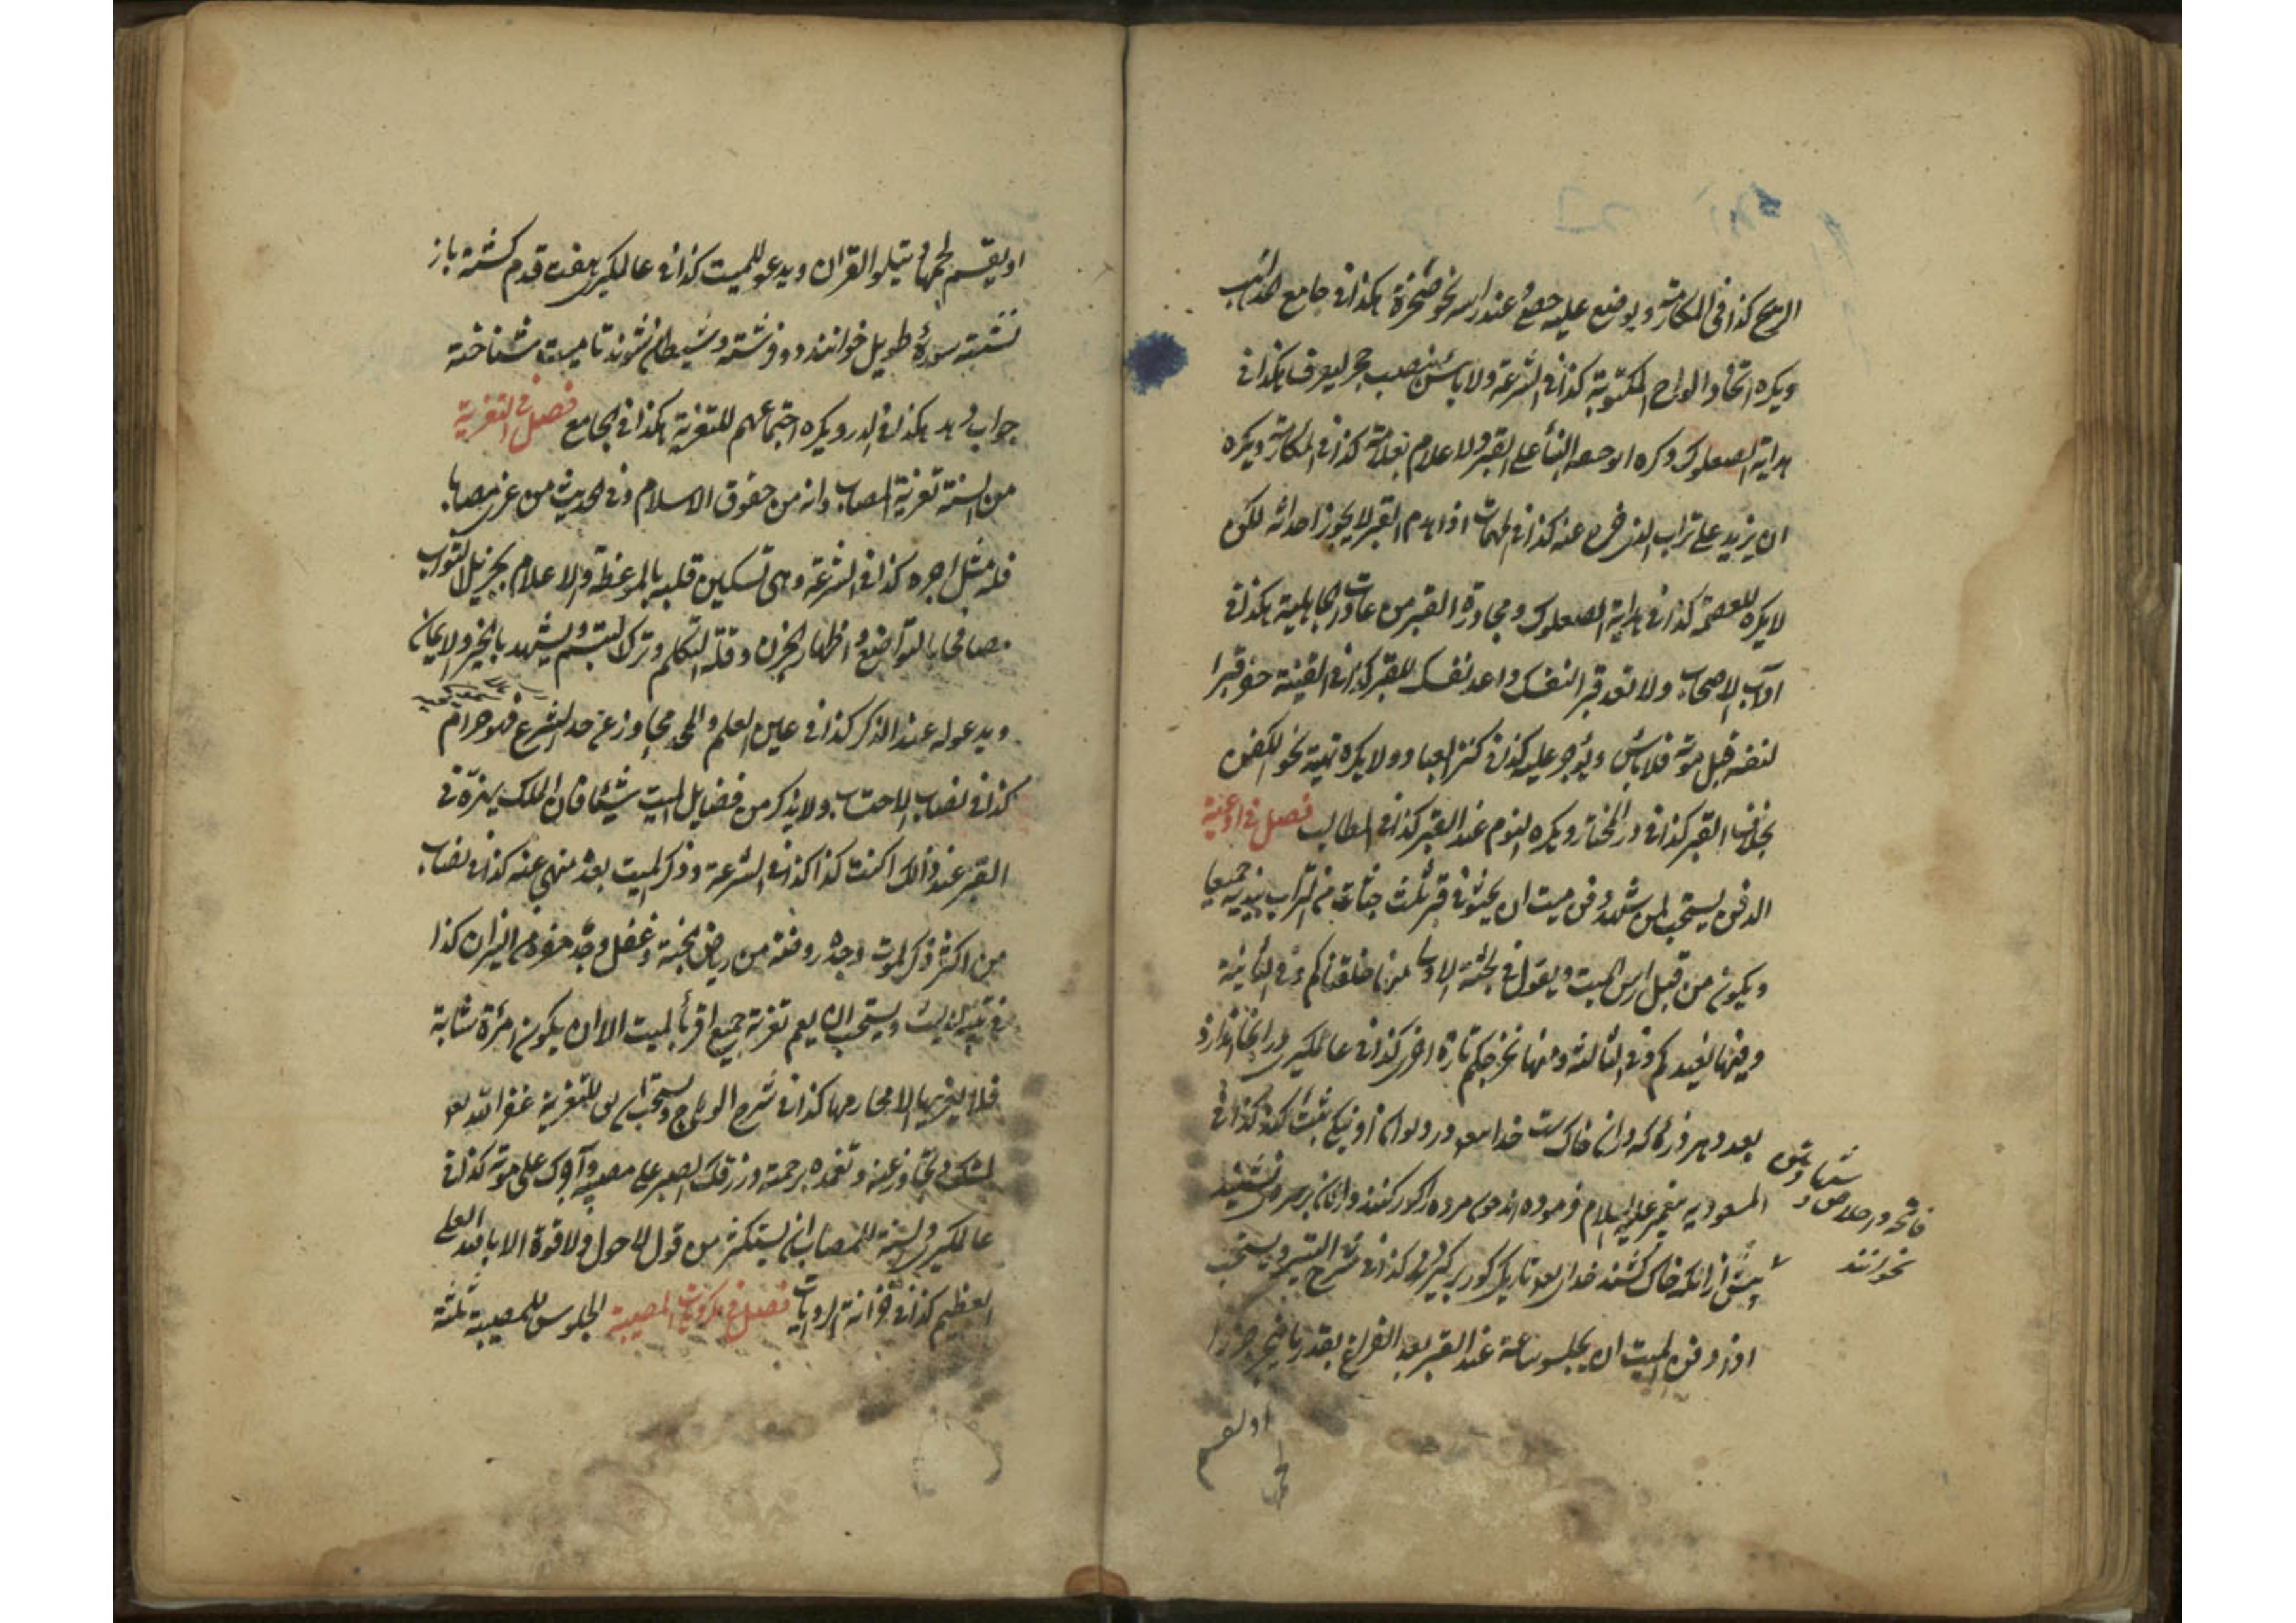 الريح كذا في المكارمة ويوضع عليه حصى وعند رأسه نحو صخرة هكذا في جامع
ويكره اتخاذ الواح المكتوبة كذا في الشرعة ولا بأس بنصب حجر ليعرف هكذا في
هداية الصعلوك وكره ابو حنيفه البنأ على القبر ولا اعلام بعلامة كذا في المكارمة ويكره
ان يزيد على تراب الذي خرج عنه كذا في المهمات اذا انهدم القبر لا يجوز احداثه لكن
لا يكره للعصمة كذا في هداية الصعلوك ومجاورة القبر من عادت الجاهلية هكذا في
آداب الاصحاب ولا تعد قبرا لنفسك واعد نفسك للقبر كذا في القنية حفر قبرا
لنفسه قبل موته فلا بأس ويؤجر عليه كذا في كنز العباد ولا يكره تهية نحو الكفن
بخلاف القبر كذا في در المختار ويكره النوم عند القبر كذا في المطالب فصل في ادعية
الدفن يستحب لمن شهد دفن ميت ان يحثو في قبر ثلث حثيات من التراب بيديه جميعا
ويكون من قبل راس الميت ويقول في الحثية الاولى منها خلقناكم وفي الثانية
وفيها نعيدكم وفي الثالثة ومنها نخرجكم تارة اخرى كذا في عالمكيري در انجا اندازد
بعدد هر ذره كه در ان خاك ست خدايتعالى در ديوان او نيكي ثبت كند كذا في
المسعوديه پيغمبر عليه السلام فرموده اند چون مرده را در كور كنند و ايشان بر سر نشينند
پيش از انكه خاك كشند خدايتعالى تاريكي كور بر كيرد كذا في شرح ويستحب
اذا دفن الميت ان يجلس ساعة عند القبر بعد الفراغ بقدر ما ينحر جزورا
فاتحه و اخلاص
بخوانند
او يقسم
لحمها
او يقسم لحمها ويتلو القرآن ويدعو للميت كذا في عالمكيري هفت قدم كشته باز
نشسته سورهٔ طويل خوانند دو فرشته وشيطان نشوند تا ميت شناخته
جواب دهد هكذا في الدرر ويكره اجتماعهم للتعزية هكذا في الجامع فصل في التعزية
من السنة تعزية المصاب وانه من حقوق الاسلام وفي الحديث من عزى مصابا
فله مثل اجره كذا في الشرعة وهي تسكين قلبه بالموعظة والاعلام بجزيل الثواب
مصافحا بالتواضع واظهار الحزن وقلة التكلم وترك التبسم ويشهد بالخير والايمان
ويدعو له عند الذكر كذا في عين العلم والمجاوز عن حد الشرع فهو حرام
كذا في نصاب الاحتساب ولا يذكر من فضايل الميت شيئا فان الملك يهزه في
القبر عند ذلك اكنت كذا كذا في الشرعة وذكر الميت بعد منهي عنه كذا في نصاب
من اكثر ذكر الموت وجده روضة من رياض الجنة وغفل وجده حفرة من النيران كذا
في تنبيه ويستحب ان يعم تعزية جميع اقرباء الميت الا ان يكون امرأة شابة
فلا يعزيها الا محارمها كذا في شرح الوهاج ويستحب ان يقال للتعزية غفر الله تعالى
لميتك وتجاوز عنه وتغمده برحمته ورزقك الصبر على مصيبته وآجرك على موته كذا في
عالمكيري والسنة للمصاب ان يستكثر من قول لا حول ولا قوة الا بالله العلي
العظيم كذا في خزانة الروايات فصل في مكروهات المصيبة الجلوس للمصيبة ثلثة